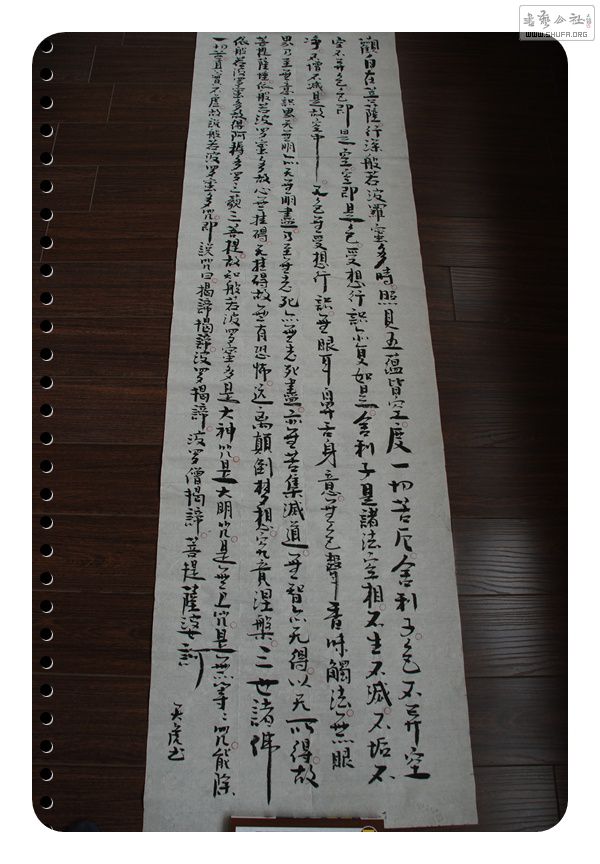 書藝公社
WWW.SHUFA.ORG
觀自在菩薩行深般若波羅蜜多時照見五蘊皆空度一切苦厄舍利子色不异空
空不异色色即是空空即是色受想行識亦復如是舍利子是諸法空相不生不滅不垢不
淨不增不減是故空中无色無受想行識無眼耳鼻舌身意無色聲香味觸法無眼
界乃至無意識界无無明亦无無明盡乃至無老死亦無老死盡亦無苦集滅道無智亦无得以无所得故
菩提薩埵依般若波罗蜜多故心無挂碍无挂碍故無有恐怖远离顛倒梦想究竟涅槃三世諸佛
依般若波罗蜜多故得阿耨多罗三藐三菩提故知般若波罗蜜多是大神咒是大明咒是無上咒是無等々咒能除
一切苦真實不虛故說般若波罗蜜多咒即說咒曰揭諦揭諦波罗揭諦波罗僧揭諦菩提薩婆訶